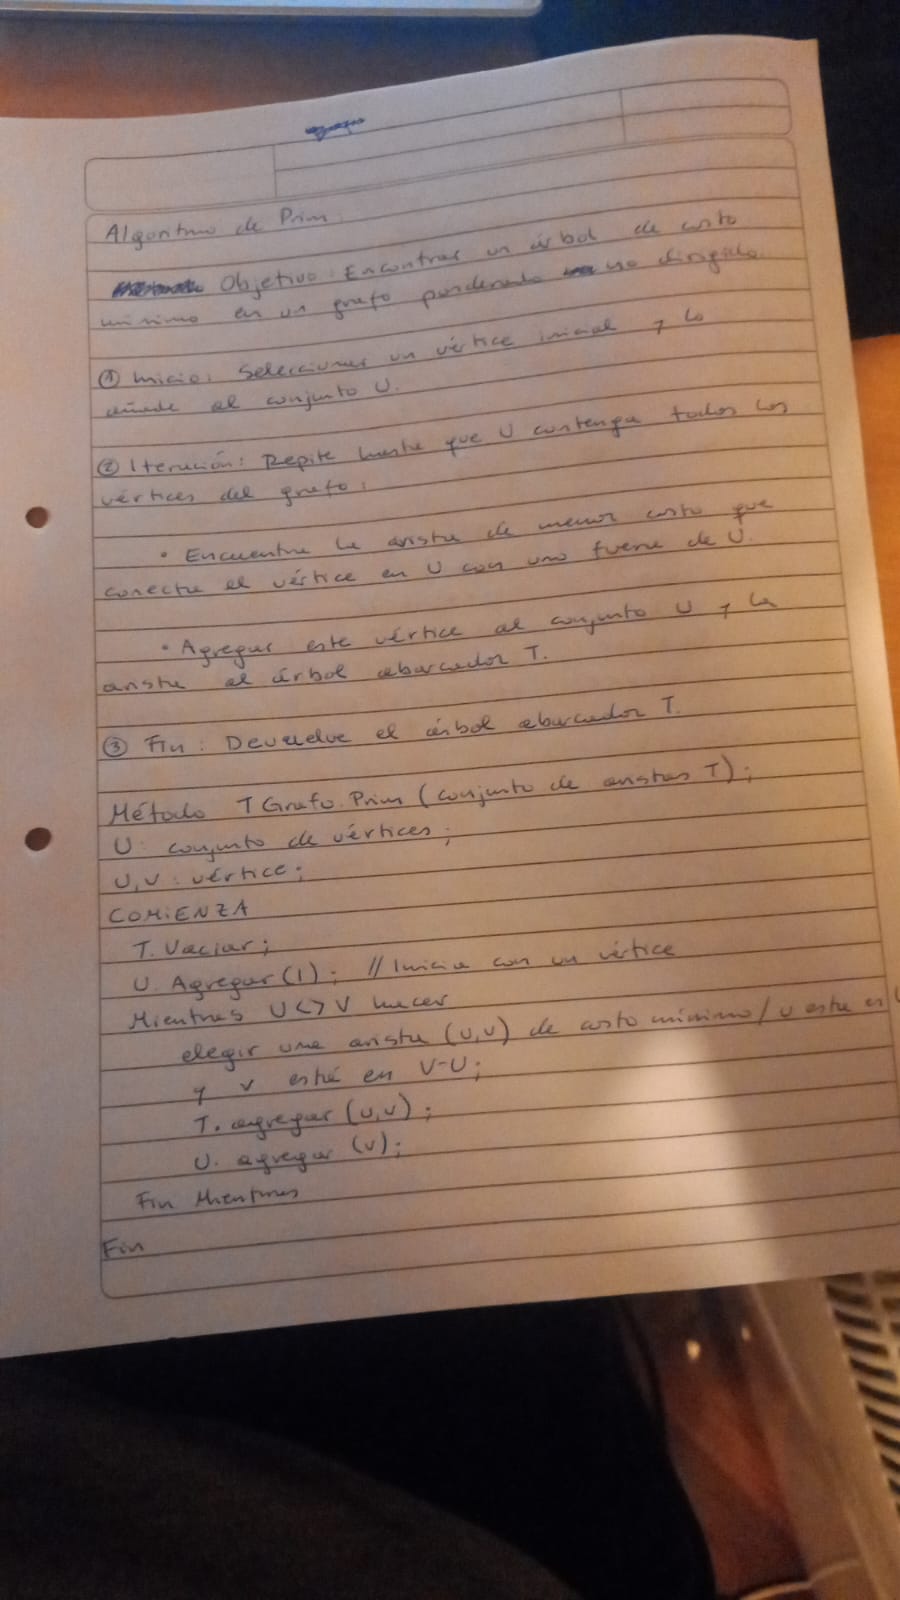 Algoritmo de Prim.
Objetivo: Encontrar un árbol de costo
mínimo en un grafo ponderado no dirigido.
① Inicio: Seleccionar un vértice inicial y lo
añade al conjunto U.
② Iteración: Repite hasta que U contenga todos los
vértices del grafo:
• Encuentra la arista de menor costo que
conecta el vértice en U con uno fuera de U.
• Agregar este vértice al conjunto U y la
arista al árbol abarcador T.
③ Fin: Devuelve el árbol abarcador T.
Método TGrafo.Prim (conjunto de aristas T);
U: conjunto de vértices;
U,V: vértice;
COMIENZA
T. Vaciar;
U. Agregar (1); // Inicia con un vértice
Mientras U<>V hacer
elegir una arista (u,v) de costo mínimo / u esta en U
y v esté en V-U;
T. agregar (u,v);
U. agregar (v);
Fin Mientras
Fin